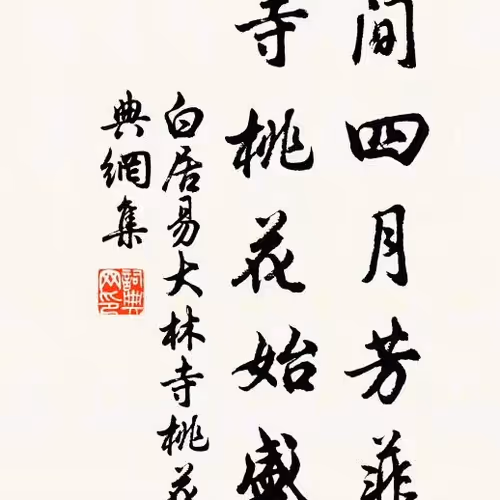 間四月芳菲
寺桃花始盛
白居易大林寺桃花
典網集
詞典網印